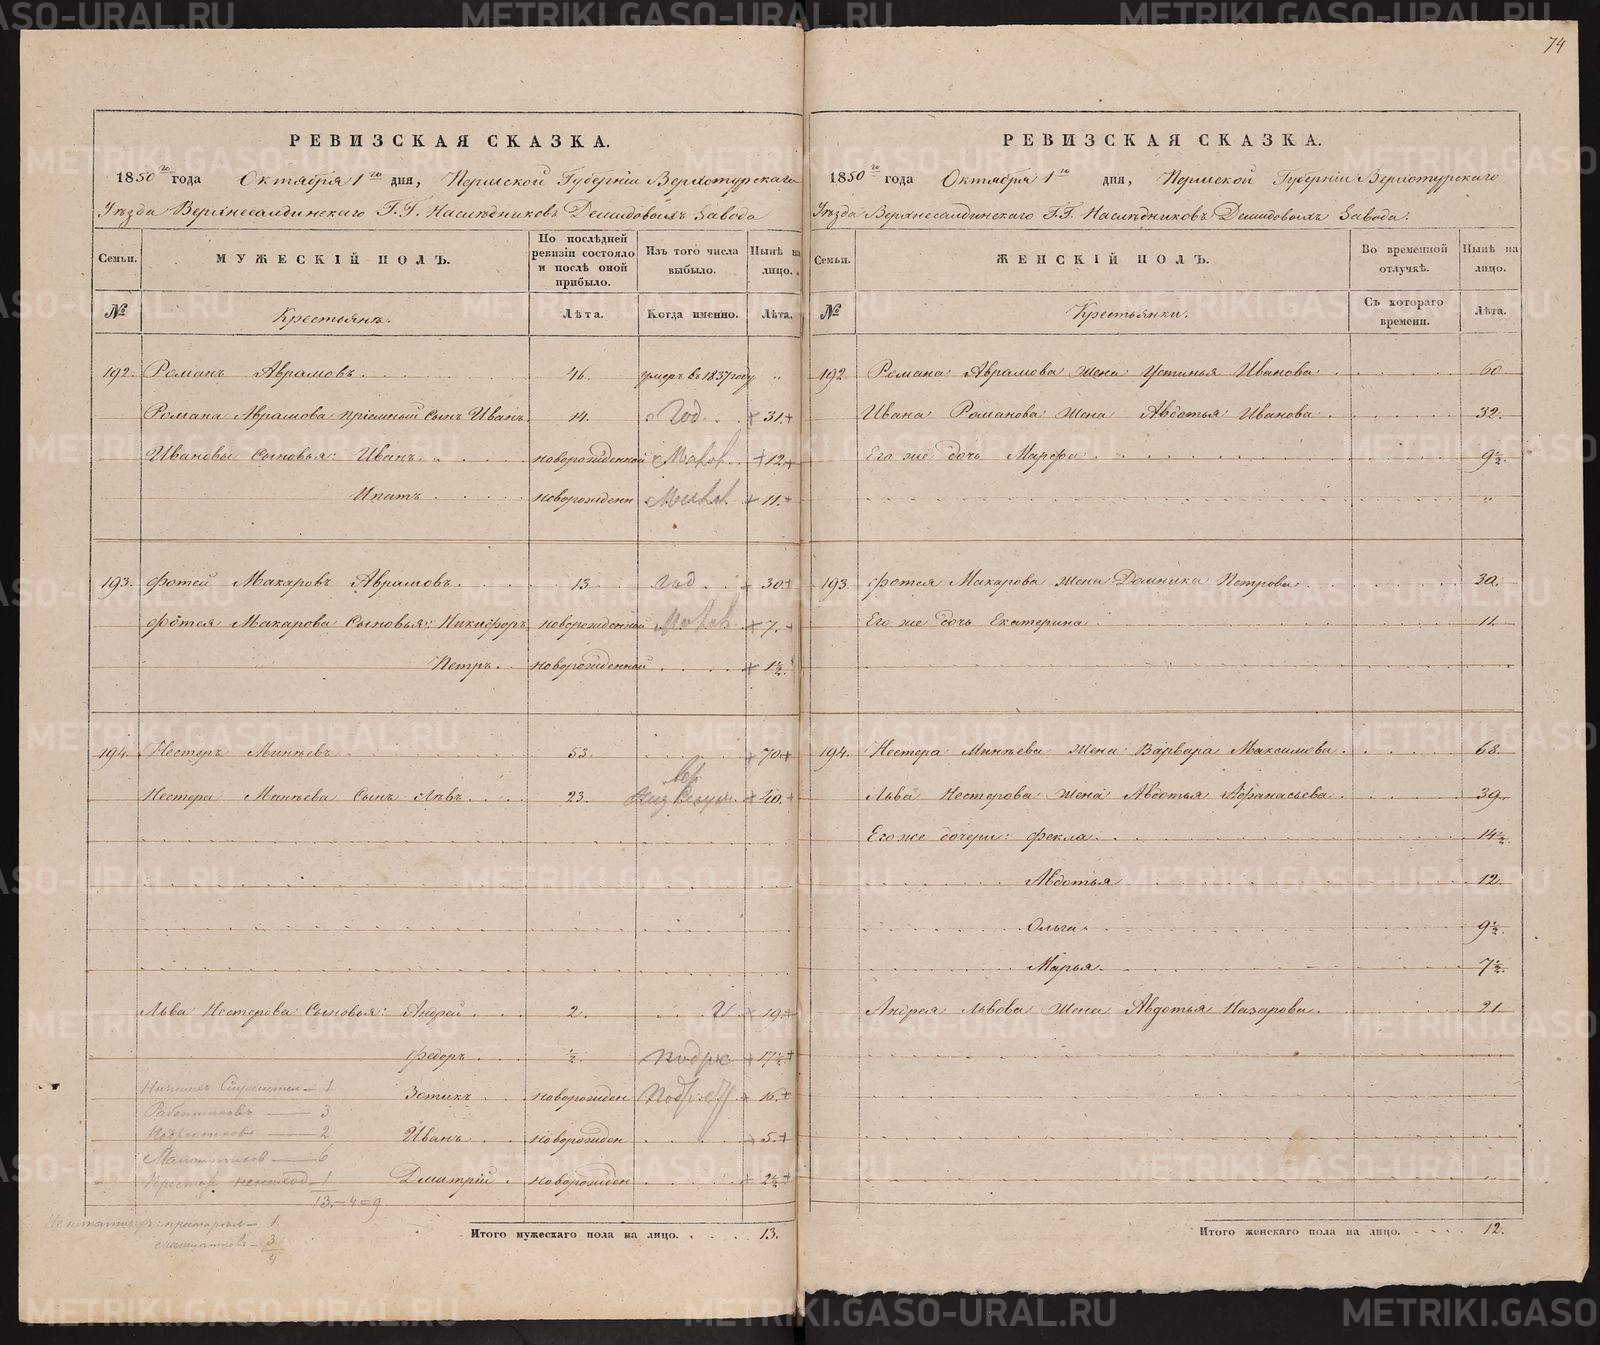 74
РЕВИЗСКАЯ СКАЗКА.
1850го года Октября 1го дня, Пермской Губерніи Верхотурскаго
Уѣзда Верхнесалдинскаго Г.Г. Наслѣдниковъ Демидовыхъ Завода
Семьи. МУЖЕСКІЙ ПОЛЪ. По послѣдней ревизіи состояло и послѣ оной прибыло. Изъ того числа выбыло. Нынѣ на лицо.
№ Крестьяне. Лѣта. Когда именно. Лѣта.
192. Романъ Аврамовъ 46. умеръ въ 1837 году "
Романа Аврамова пріемный сынъ Иванъ 14. Год + 31. +
Ивановы Сыновья: Иванъ новорожденной + 12 +
Ипатъ новорожден + 11. +
193. Фотей Макаровъ Аврамовъ 13 год + 30 +
Фотея Макарова Сыновья: Никифоръ новорожденной + 7. +
Петръ новорожденной + 1½
194. Нестеръ Минѣевъ 53. + 70 +
Нестера Минѣева Сынъ Лѣвъ 23. + 40. +
Льва Нестерова Сыновья: Андрей 2. + 19. +
Федоръ ½. подрос + 17½ +
Зотикъ новорожден + 16. +
Иванъ новорожден + 5. +
Дмитрій новорожден + 2½ +
Работниковъ — 3
Подростковъ — 2
Малолѣтковъ — 6
13 – 4 = 9
Итого мужескаго пола на лицо. 13.
РЕВИЗСКАЯ СКАЗКА.
1850го года Октября 1го дня, Пермской Губерніи Верхотурскаго
Уѣзда Верхнесалдинскаго Г.Г. Наслѣдниковъ Демидовыхъ Завода.
Семьи. ЖЕНСКІЙ ПОЛЪ. Во временной отлучкѣ. Нынѣ на лицо.
№ Крестьянки. Съ котораго времени. Лѣта.
192. Романа Аврамова жена Устинья Иванова 60
Ивана Романова жена Авдотья Иванова 32.
Его же дочь Марфа 9½.
"
193. Фотея Макарова жена Домника Петрова 30.
Его же дочь Екатерина 11.
194. Нестера Минѣева жена Варвара Максимова 68.
Льва Нестерова жена Авдотья Афанасьева 39.
Его же дочери: Фекла 14½
Авдотья 12.
Ольга 9½.
Марья 7½.
Андрея Львова жена Авдотья Назарова 21
Итого женскаго пола на лицо. 12.
METRIKI.GASO-URAL.RU